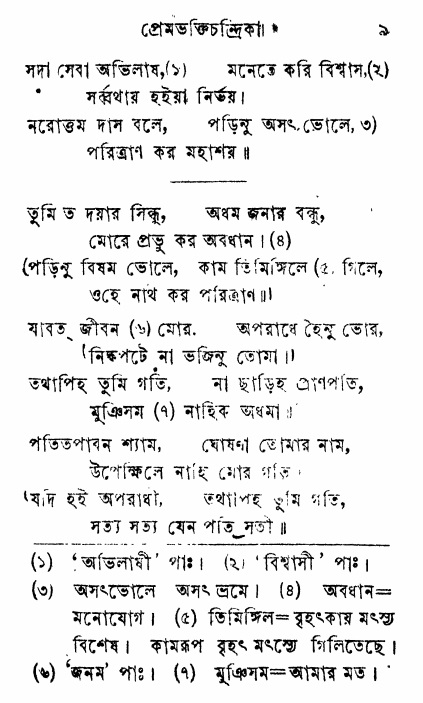 প্রেমভক্তিচন্দ্রিকা॥ ৯
সদা সেবা অভিলাষ,(১) মনেতে করি বিশ্বাস,(২)
সর্ব্বথায় হইয়া নির্ভয়।
নরোত্তম দাস বলে, পড়িনু অসৎ ভোলে, ৩)
পরিত্রাণ কর মহাশয়॥
তুমি ত দয়ার সিন্ধু, অধম জনার বন্ধু,
মোরে প্রভু কর অবধান। (৪)
(পড়িনু বিষম ভোলে, কাম তিমিঙ্গিলে (৫. গিলে,
ওহে নাথ কর পরিত্রাণ॥)
যাবত জীবন (৬) মোর. অপরাধে হৈনু ভোর,
(নিষ্কপটে না ভজিনু তোমা।)
তথাপিহ তুমি গতি, না ছাড়িহ প্রাণপতি,
মুঞিসম (৭) নাহিক অধমা॥
পতিতপাবন শ্যাম, ঘোষনা তোমার নাম,
উপেক্ষিলে নাহি মোর গতি।
যদি হই অপরাধী, তথাপিহ তুমি গতি,
সত্য সত্য যেন পতি সতী॥
(১) 'অভিলাষী' পাঃ। (২) 'বিশ্বাসী' পাঃ।
(৩) অসৎভোলে অসৎ ভ্রমে। (৪) অবধান=
মনোযোগ। (৫) তিমিঙ্গিল=বৃহৎকায় মৎস্য
বিশেষ। কামরূপ বৃহৎ মৎস্যে গিলিতেছে।
(৬) 'জনম' পাঃ। (৭) মুঞিসম=আমার মত।